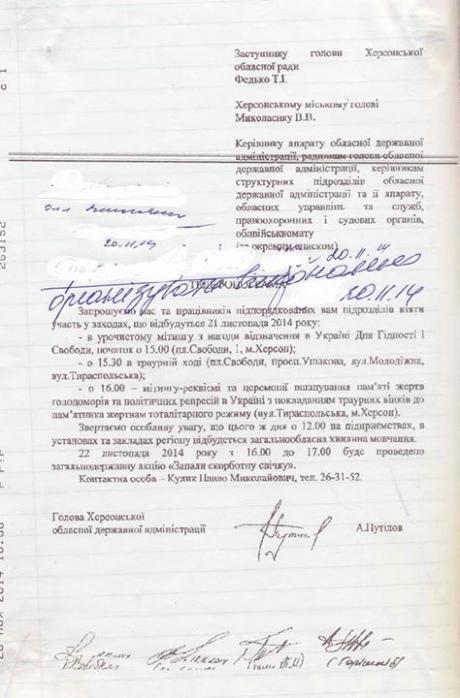 Заступнику голови Херсонської
обласної ради
Федько Т.І.
Херсонському міському голові
Миколаєнку В.В.
Керівнику апарату обласної державної
адміністрації, радникам голови обласної
державної адміністрації, керівникам
структурних підрозділів обласної
державної адміністрації та її апарату,
обласних управлінь та служб,
правоохоронних і судових органів,
облвійськкомату
(за окремим списком)
для
20.11.14
20.11.14
організувати
20.11.14
Запрошуємо вас та працівників підпорядкованих вам підрозділів взяти
участь у заходах, що відбудуться 21 листопада 2014 року:
- в урочистому мітингу з нагоди відзначення в Україні Дня Гідності і
Свободи, початок о 15.00 (пл.Свободи, 1, м.Херсон);
- о 15.30 в траурній ході (пл.Свободи, просп.Ушакова, вул.Молодіжна,
вул.Тираспольська);
- о 16.00 – мітингу-реквіємі та церемонії вшанування пам'яті жертв
голодоморів та політичних репресій в Україні з покладанням траурних вінків до
пам'ятника жертвам тоталітарного режиму (вул.Тираспольська, м.Херсон).
Звертаємо особливу увагу, що цього ж дня о 12.00 на підприємствах, в
установах та закладах регіону відбудеться загальнообласна хвилина мовчання.
22 листопада 2014 року з 16.00 до 17.00 буде проведено
загальнодержавну акцію «Запали скорботну свічку».
Контактна особа – Кулик Павло Миколайович, тел. 26-31-52.
Голова Херсонської
обласної державної адміністрації
А.Путілов
263152